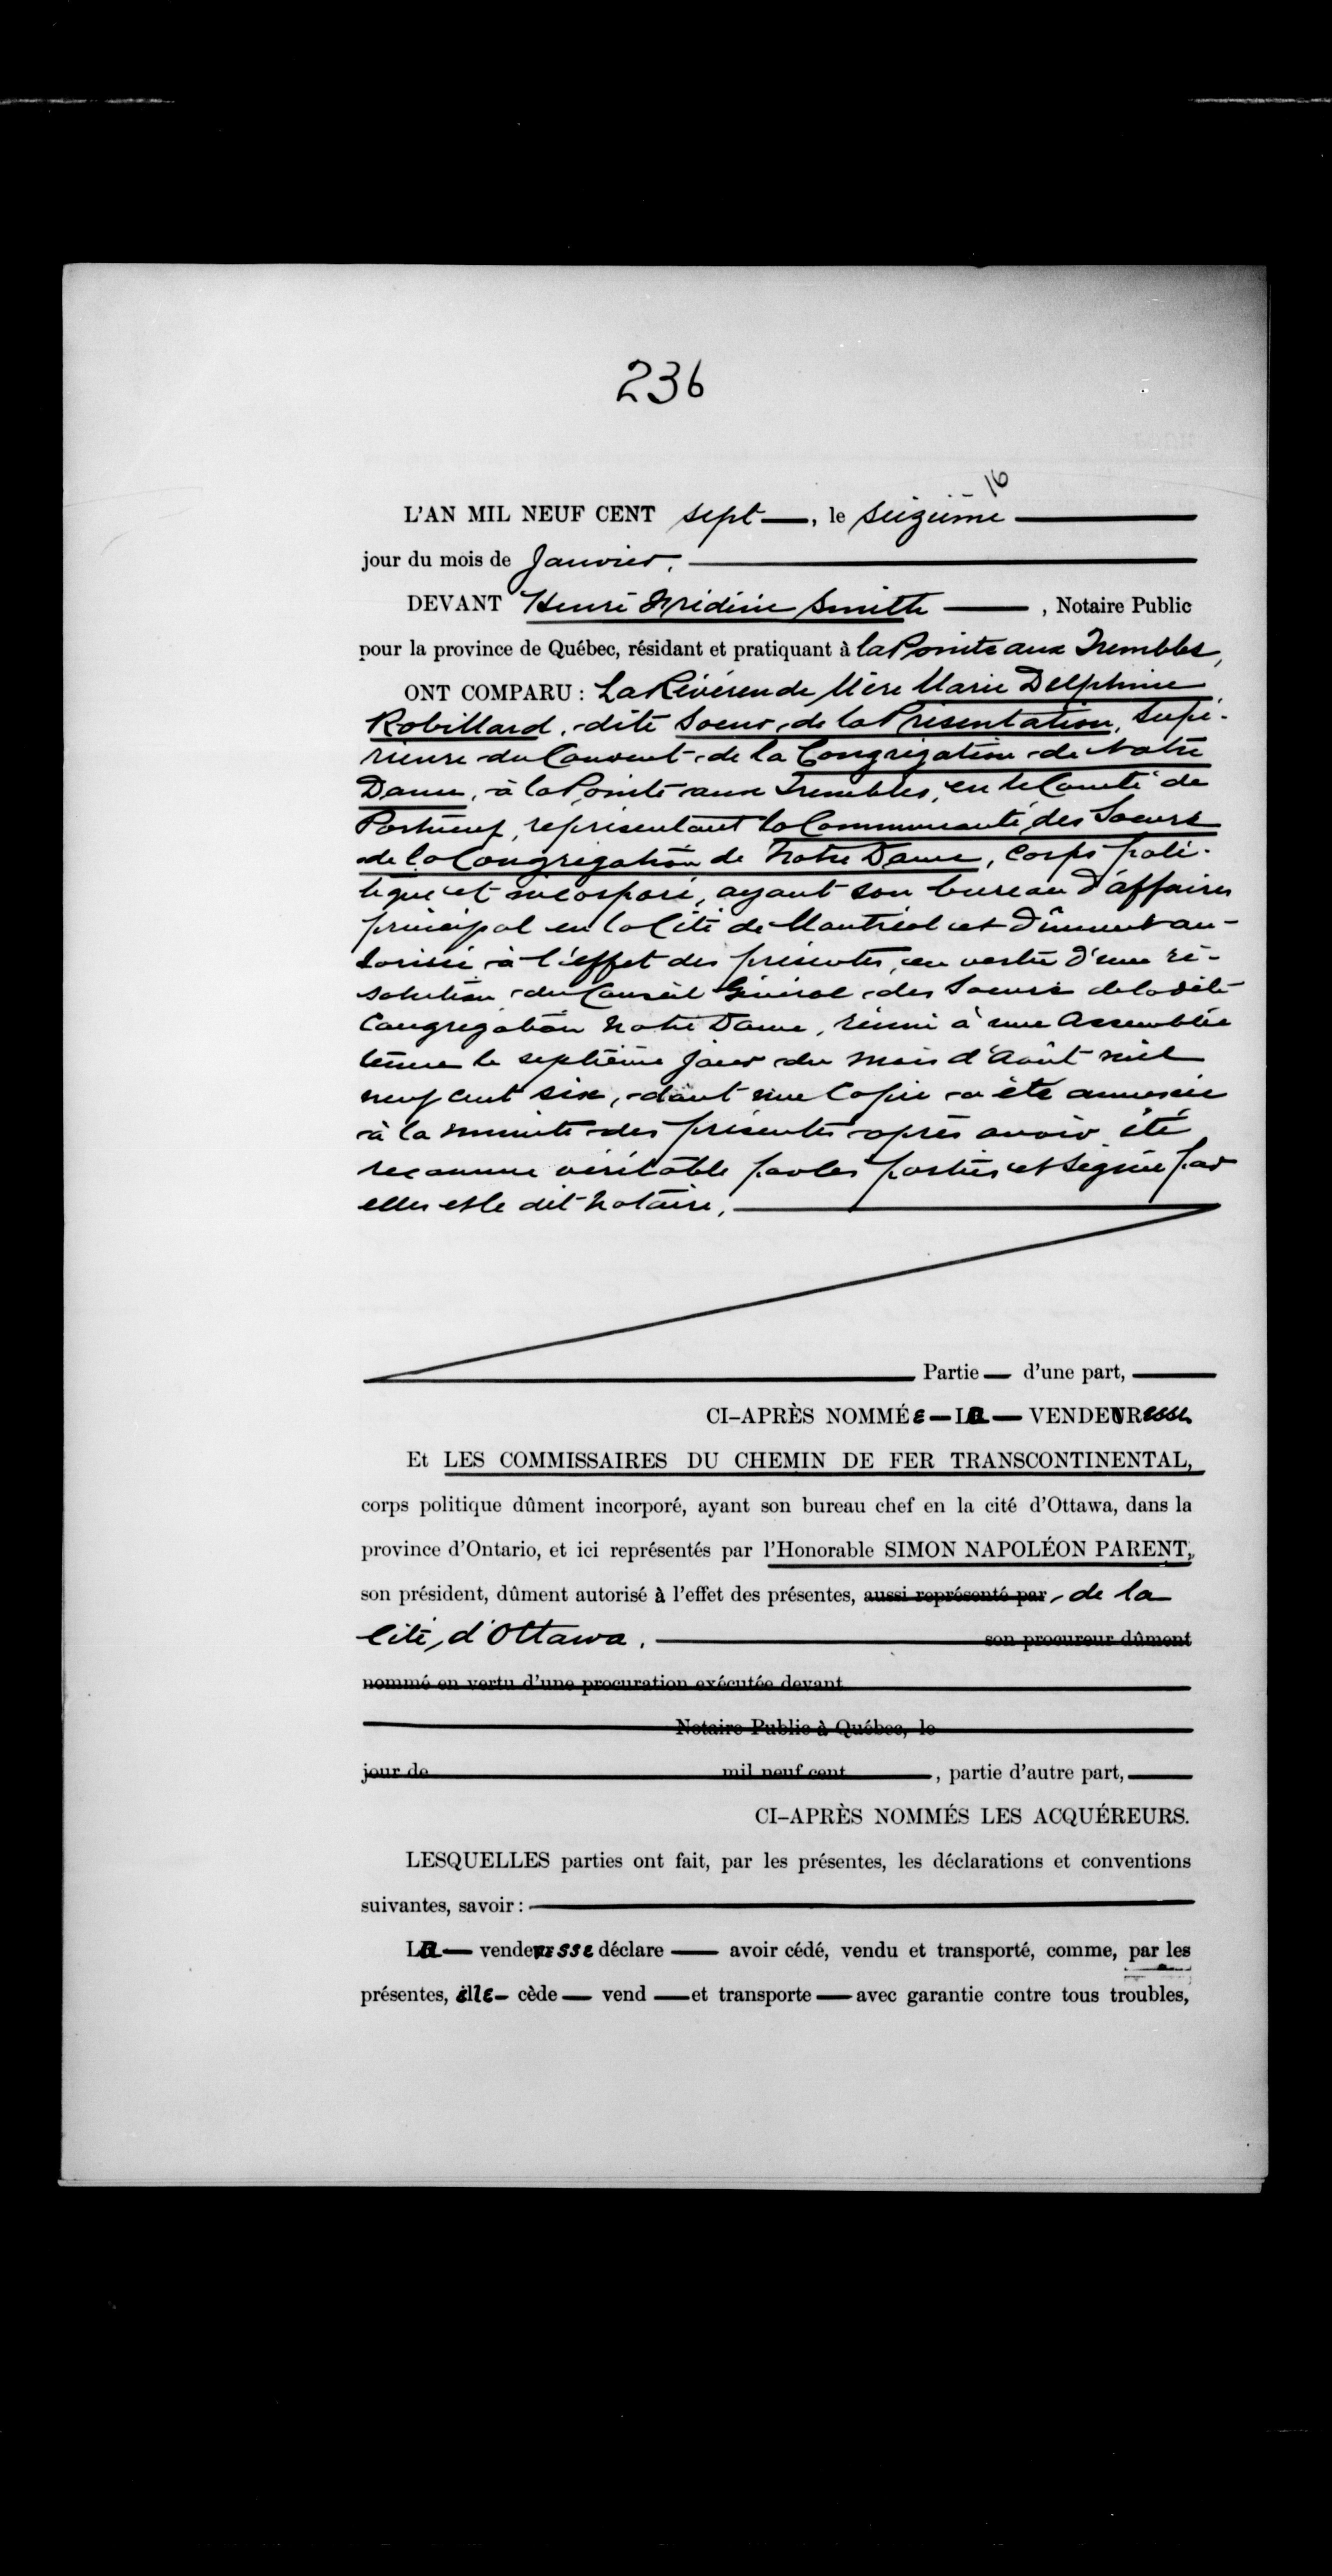 236
16
L'AN MIL NEUF CENT sept —, le seizième —
jour du mois de Janvier. —
DEVANT Henri Smith —, Notaire Public
pour la province de Québec, résidant et pratiquant à la Pointe aux Trembles,
ONT COMPARU : La Révérende Mère Marie Delphine
Robillard, dite Soeur de la Présentation, Supé-
rieure du Couvent de la Congrégation de Notre
Dame, à la Pointe aux Trembles, en le Comté de
Portneuf, représentant la Communauté des Soeurs
de la Congrégation de Notre Dame, Corps poli-
tique et incorporé, ayant son bureau d'affaires
principal en la Cité de Montréal et dûment au-
torisée à l'effet des présentes, en vertu d'une ré-
solution du Conseil Général des Soeurs de la dite
Congrégation Notre Dame, réuni à une Assemblée
tenue le septième jour du mois d'Août mil
neuf cent six, dont une Copie a été annexée
à la minute des présentes après avoir été
reconnue véritable par les parties et signée par
elles et le dit Notaire. —
Partie — d'une part, —
CI-APRÈS NOMMÉE — LA — VENDERESSE
Et LES COMMISSAIRES DU CHEMIN DE FER TRANSCONTINENTAL,
corps politique dûment incorporé, ayant son bureau chef en la cité d'Ottawa, dans la
province d'Ontario, et ici représentés par l'Honorable SIMON NAPOLÉON PARENT,
son président, dûment autorisé à l'effet des présentes, aussi représenté par, de la
Cité d'Ottawa. — son procureur dûment
nommé en vertu d'une procuration exécutée devant
Notaire Public à Québec, le
jour de mil neuf cent —, partie d'autre part, —
CI-APRÈS NOMMÉS LES ACQUÉREURS.
LESQUELLES parties ont fait, par les présentes, les déclarations et conventions
suivantes, savoir : —
La — venderesse déclare — avoir cédé, vendu et transporté, comme, par les
présentes, elle — cède — vend — et transporte — avec garantie contre tous troubles,